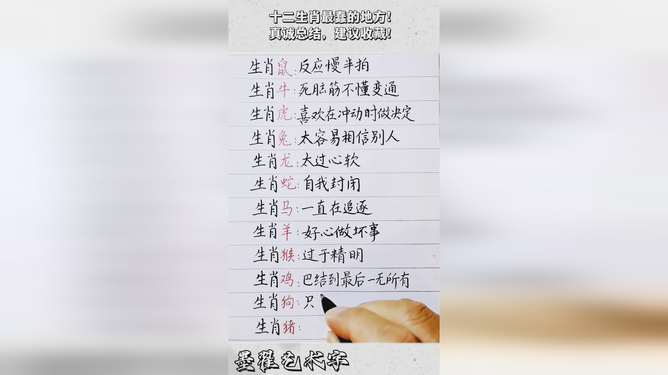 十二生肖最蠢的地方!
真诚总结，建议收藏!
生肖鼠:反应慢半拍
生肖牛:死脑筋不懂变通
生肖虎:喜欢在冲动时做决定
生肖兔:太容易相信别人
生肖龙:太过心软
生肖蛇:自我封闭
生肖马:一直在追逐
生肖羊:好心做坏事
生肖猴:过于精明
生肖鸡:巴结到最后一无所有
生肖狗:只
生肖猪:
墨雅艺术字